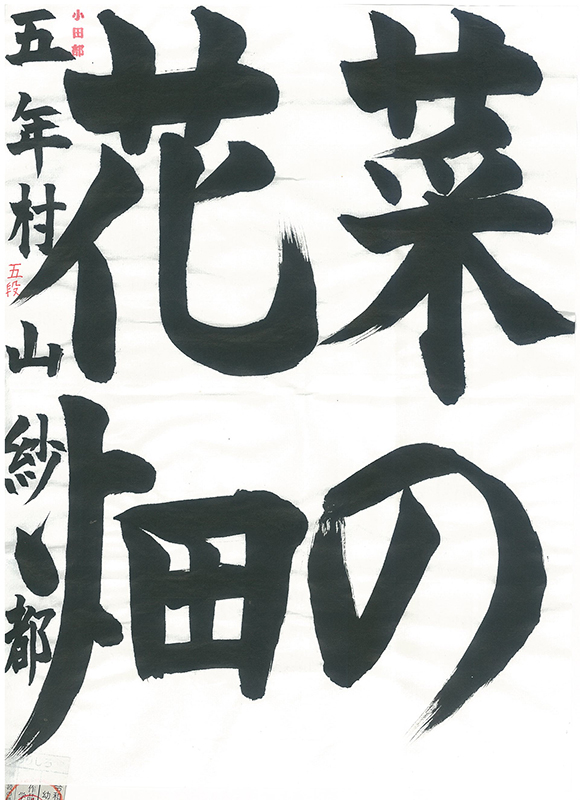 菜の
花畑
五年村山紗都
小田部
五段